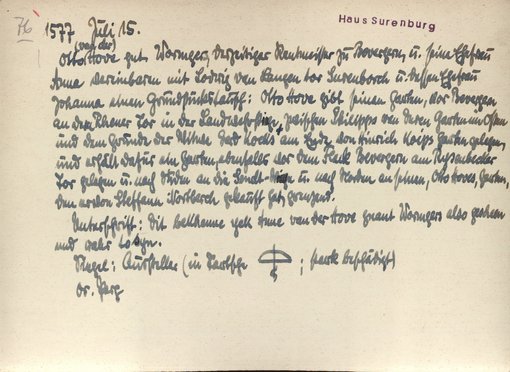 76
Haus Surenburg
1577 Juli 15.
(von der)
Otto Hove gnt. Wormger, derzeitiger Rentmeister zu Bevergern, u. seine Ehefrau
Anna vereinbaren mit Lodwig von Langen tor Surenborch u. dessen Ehefrau
Johanna einen Grundstückstausch: Otto Hove gibt seinen Garten, vor Bevergern
an dem Rheiner Tor in der Landwehr, zwischen Philipps von Beren Garten im Osten
und dem Grunde der Witwe am Ende von Hinrich Garten gelegen,
und erhält dafür ein Garten, ebenfalls vor dem Fleck Bevergern am
Tor gelegen u. nach Süden an die u. nach Norden an seinen, Otto Hoves, Garten,
den er von Steffann gekauft hat, grenzend.
Unterschrift: Dit bekenne yck Anne van der Hove gnant Wormgers also gescheen
und wahr to syn.
Siegel: Aussteller (in Tartsche ; stark beschädigt)
Or. Perg.